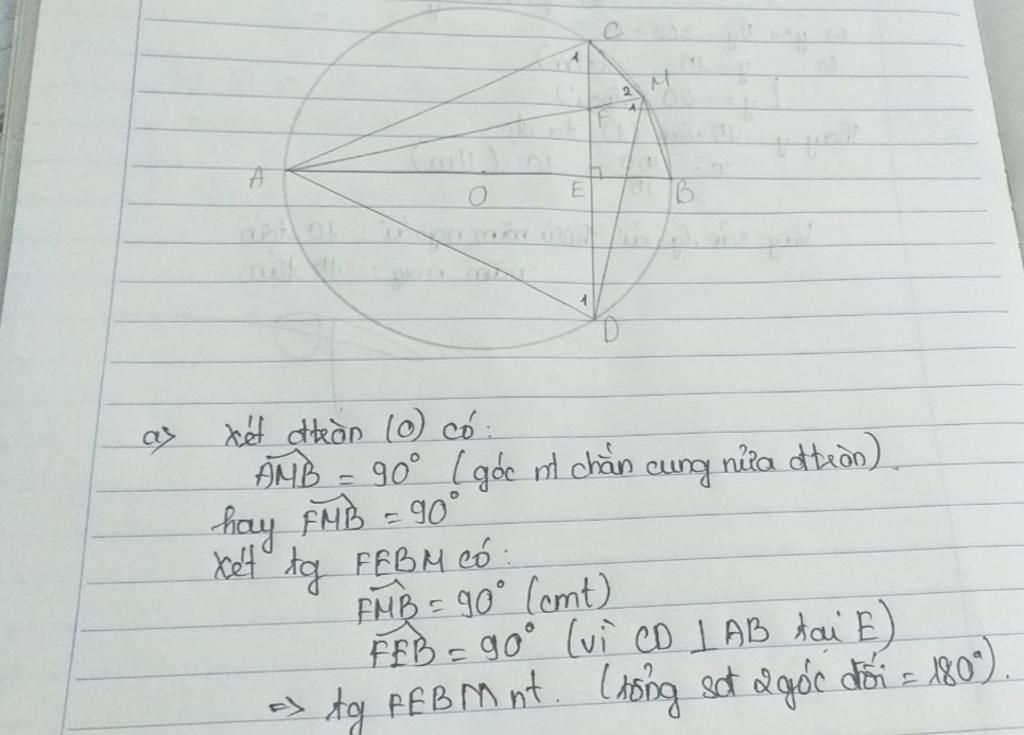 C
1
M
2
1
F
A
O
E
B
1
D
a> Xét đtròn (O) có:
AMB = 90° (góc nt chắn cung nửa đtròn).
hay FMB = 90°
Xét tg FEBM có:
FMB = 90° (cmt)
FEB = 90° (vì CD ⊥ AB tại E)
=> tg FEBM nt. (tổng sđ 2 góc đối = 180°).